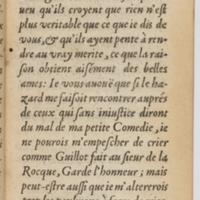 ueu qu'ils croyent que rien n'est
plus veritable que ce que ie dis de
vous, & qu'ils ayent pente à ren-
dre au vray merite, ce que la rai-
son obtient aisément des belles
ames: Ie vous auouë que si le ha-
zard me faisoit rencontrer auprés
de ceux qui sans iniustice diront
du mal de ma petite Comedie, ie
ne pourois m'empescher de crier
comme Guillot fait au sieur de la
Rocque, Garde l'honneur; mais
peut-estre aussi que ie m'altererois